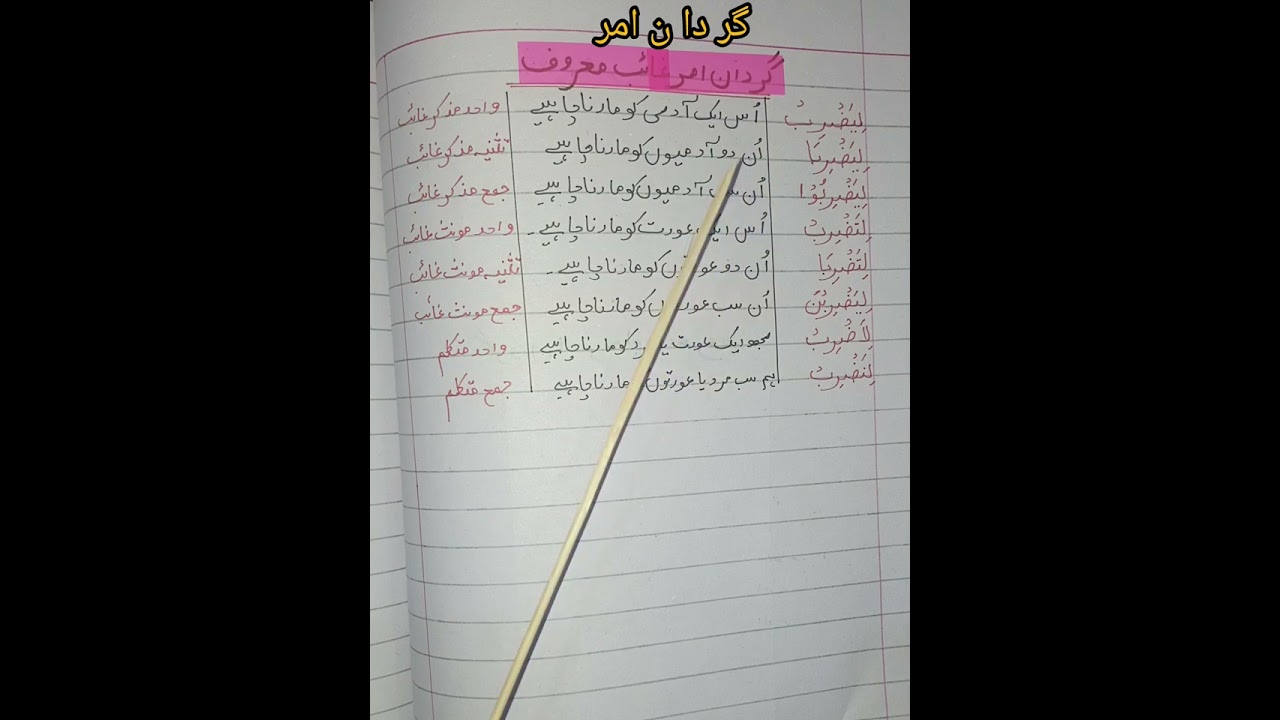 گر دا ن امر
گردان امر غائب معروف
لِیَضْرِبْ اُس ایک آدمی کو مارنا چاہیے واحد مذکر غائب
لِیَضْرِبَا اُن دو آدمیوں کو مارنا چاہیے تثنیہ مذکر غائب
لِیَضْرِبُوْا اُن سب آدمیوں کو مارنا چاہیے جمع مذکر غائب
لِتَضْرِبْ اُس ایک عورت کو مارنا چاہیے۔ واحد مونث غائب
لِتَضْرِبَا اُن دو عورتوں کو مارنا چاہیے۔ تثنیہ مونث غائب
لِیَضْرِبْنَ اُن سب عورتوں کو مارنا چاہیے جمع مونث غائب
لِاَضْرِبْ مجھ ایک عورت یا مرد کو مارنا چاہیے واحد متکلم
لِنَضْرِبْ ہم سب مرد یا عورتوں مارنا چاہیے جمع متکلم